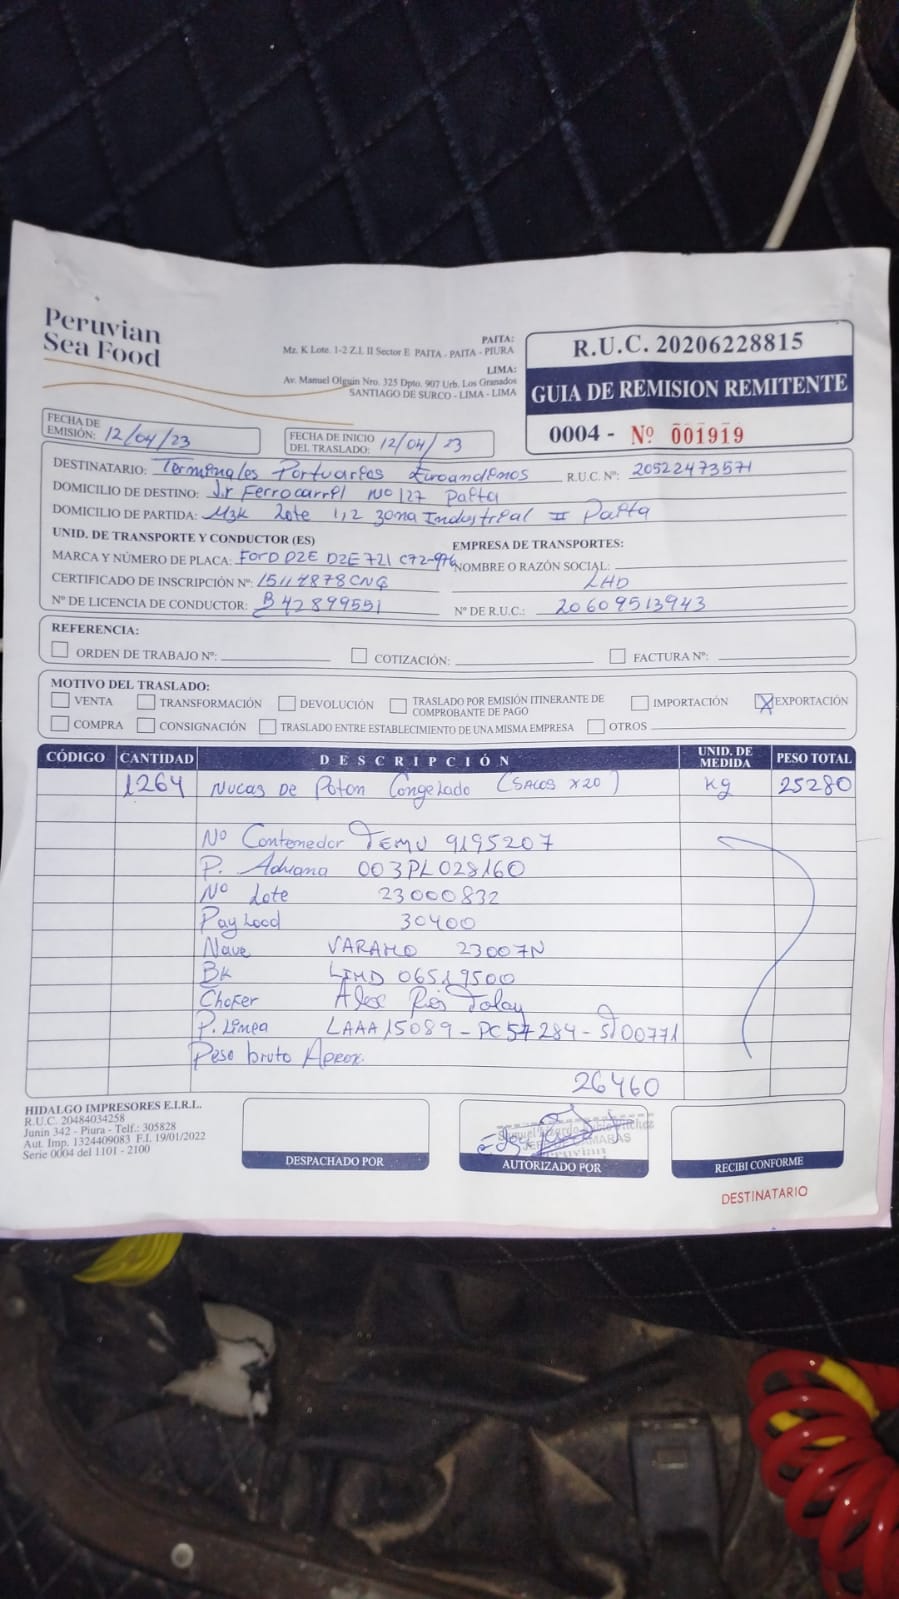 Peruvian
Sea Food
PAITA:
Mz. K Lote. 1-2 Z.I. II Sector E PAITA - PAITA - PIURA
LIMA:
Av. Manuel Olguin Nro. 325 Dpto. 907 Urb. Los Granados
SANTIAGO DE SURCO - LIMA - LIMA
R.U.C. 20206228815
GUIA DE REMISION REMITENTE
0004 - Nº 001919
FECHA DE EMISIÓN: 12/04/23
FECHA DE INICIO DEL TRASLADO: 12/04/23
DESTINATARIO: Terminales Portuarios Euroandinos R.U.C. Nº: 20522473571
DOMICILIO DE DESTINO: Jr Ferrocarril Nº 127 Paita
DOMICILIO DE PARTIDA: Mzk Lote 1,2 Zona Industrial II Paita
UNID. DE TRANSPORTE Y CONDUCTOR (ES)
MARCA Y NÚMERO DE PLACA: FORD D2E D2E721 C72-976
CERTIFICADO DE INSCRIPCIÓN Nº: 15114878CNG
Nº DE LICENCIA DE CONDUCTOR: B42899551
EMPRESA DE TRANSPORTES:
NOMBRE O RAZÓN SOCIAL:
LHD
Nº DE R.U.C.: 20609513943
REFERENCIA:
ORDEN DE TRABAJO Nº: COTIZACIÓN: FACTURA Nº:
MOTIVO DEL TRASLADO:
VENTA TRANSFORMACIÓN DEVOLUCIÓN TRASLADO POR EMISIÓN ITINERANTE DE COMPROBANTE DE PAGO IMPORTACIÓN X EXPORTACIÓN
COMPRA CONSIGNACIÓN TRASLADO ENTRE ESTABLECIMIENTO DE UNA MISMA EMPRESA OTROS
CÓDIGO CANTIDAD DESCRIPCIÓN UNID. DE MEDIDA PESO TOTAL
1264 Nucas De Poton Congelado (Sacos x20) kg 25280
Nº Contenedor TEMU 9195207
P. Aduana 003PL028160
Nº Lote 23000832
PayLoad 30400
Nave VARAMO 23007N
Bk LIMD 06519500
Chofer Alex
P. Linea LAAA15089-PC57284-ST00771
Peso bruto Aprox.
26460
HIDALGO IMPRESORES E.I.R.L.
R.U.C. 20484034258
Junin 342 - Piura - Telf.: 305828
Aut. Imp. 1324409083 F.I. 19/01/2022
Serie 0004 del 1101 - 2100
DESPACHADO POR
AUTORIZADO POR
RECIBI CONFORME
DESTINATARIO